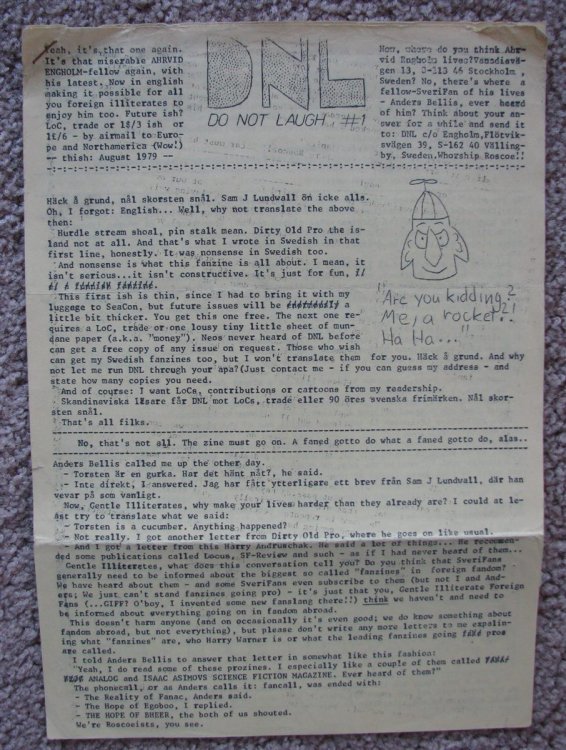 Yeah, it's that one again.
It's that miserable AHRVID
ENGHOLM-fellow again, with
his latest. Now in english
making it possible for all
you foreign illiterates to
enjoy him too. Future ish?
LoC, trade or 1$/3 ish or
1£/6 - by airmail to Euro-
pe and Northamerica (Wow!)
-- thish: August 1979 --
DNL
DO NOT LAUGH... #1
Now, where do you think Ahr-
vid Engholm lives? Vanadisvä-
gen 13, S-113 46 Stockholm,
Sweden? No, there's where a
fellow-SveriFan of his lives
- Anders Bellis, ever heard
of him? Think about your an-
swer for a while and send it
to: DNL c/o Engholm, Flötvik-
svägen 39, S-162 40 Välling-
by, Sweden, Whorship Roscoe!!
Häck å grund, nål skorsten snål. Sam J Lundwall ön icke alls.
Oh, I forgot: English... Well, why not translate the above
then:
Hurdle stream shoal, pin stalk mean. Dirty Old Pro the is-
land not at all. And that's what I wrote in Swedish in that
first line, honestly. It was nonsense in Swedish too.
And nonsense is what this fanzine is all about. I mean, it
isn't serious...it isn't constructive. It's just for fun,
This first ish is thin, since I had to bring it with my
luggage to SeaCon, but future issues will be a
little bit thicker. You get this one free. The next one re-
quires a LoC, trade or one lousy tiny little sheet of mun-
dane paper (a.k.a. "money"). Neos never heard of DNL before
can get a free copy of any issue on request. Those who wish
can get my Swedish fanzines too, but I won't translate them for you. Häck å grund. And why
not let me run DNL through your apa? (Just contact me - if you can guess my address - and
state how many copies you need.
And of course: I want LoCs, contributions or cartoons from my readership.
Skandinaviska läsare får DNL mot LoCs, trade eller 90 öres svenska frimärken. Nål skor-
sten snål.
That's all filks.
"Are you kidding?
Me, a rocket?!
Ha Ha..."
No, that's not all. The zine must go on. A faned gotto do what a faned gotto do, alas..
Anders Bellis called me up the other day.
- Torsten är en gurka. Har det hänt nåt?, he said.
- Inte direkt, I answered. Jag har fått ytterligare ett brev från Sam J Lundwall, där han
vevar på som vanligt.
Now, Gentle Illiterates, why make your lives harder than they already are? I could at le-
ast try to translate what we said:
- Torsten is a cucumber. Anything happened?
- Not really. I got another letter from Dirty Old Pro, where he goes on like usual.
- And I got a letter from this Harry Andruschak. He said a lot of things... He recommen-
ded some publications called Locus, SF-Review and such - as if I had never heard of them...
Gentle Illiterates, what does this conversation tell you? Do you think that SveriFans
generally need to be informed about the biggest so called "fanzines" in foreign fandom?
We have heard about them - and some SveriFans even subscribe to them (but not I and And-
ers; We just can't stand fanzines going pro) - it's just that you, Gentle Illiterate Foreign
Fans (...GIFF? O'boy, I invented some new fanslang there!!) think we haven't and need to
be informed about everything going on in fandom abroad.
This doesn't harm anyone (and on occasionally it's even good; we do know something about
fandom abroad, but not everything), but please don't write any more letters to me explain-
ing what "fanzines" are, who Harry Warner is or what the leading fanzines going pros
are called.
I told Anders Bellis to answer that letter in somewhat like this fashion:
"Yeah, I do read some of these prozines. I especially like a couple of them called
ANALOG and ISAAC ASIMOVS SCIENCE FICTION MAGAZINE. Ever heard of them?"
The phonecall, or as Anders calls it: fancall, was ended with:
- The Reality of Fanac, Anders said.
- The Hope of Egoboo, I replied.
- THE HOPE OF BHEER, the both of us shouted.
We're Roscoeists, you see.